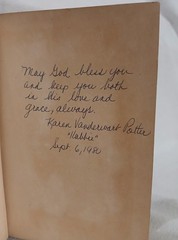 May God bless you
and keep you both
in His love and
grace, always
Karen Vanderwart Potter
Sept. 6, 1980